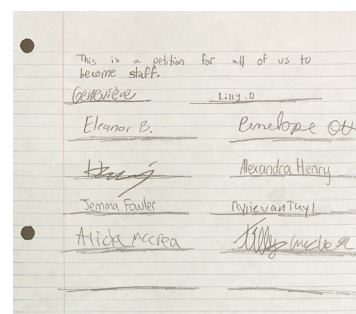 This is a petition for all of us to
become staff.
Genevieve Lilly.D
Eleanor B. Penelope
Alexandra Henry
Jemma Fowler Rylie van Tuyl
Alida mccrea